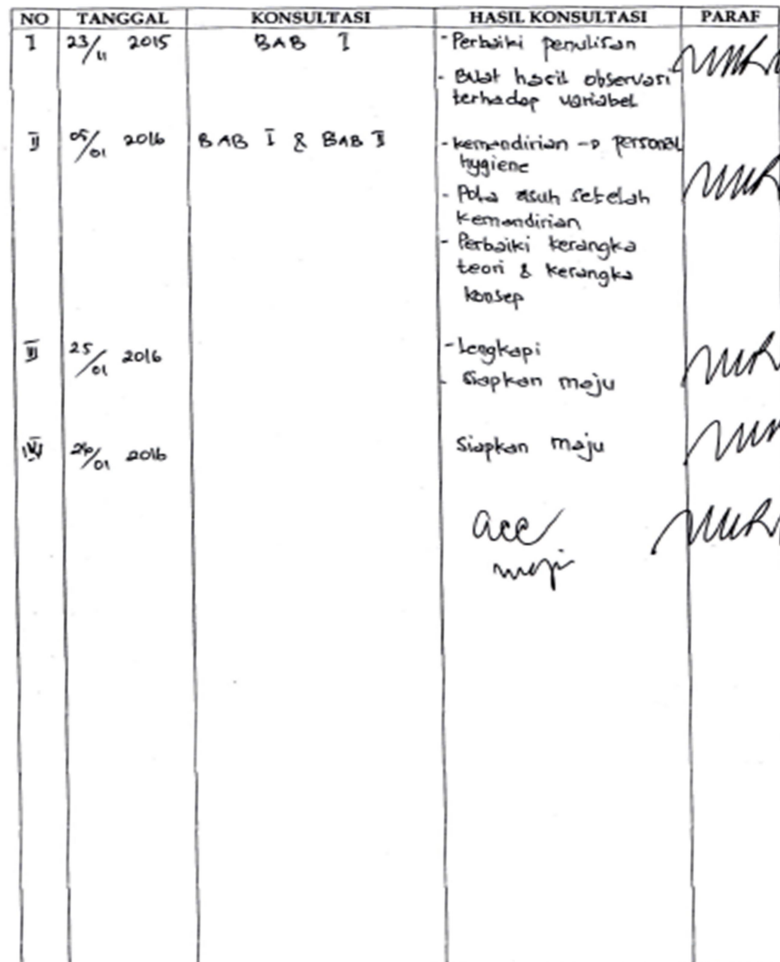 NO TANGGAL KONSULTASI HASIL KONSULTASI PARAF
I 23/11 2015 BAB I - Perbaiki penulisan
- Buat hasil observasi
terhadap variabel
II 05/01 2016 BAB I & BAB II - kemandirian → personal
hygiene
- Pola asuh setelah
kemandirian
- Perbaiki kerangka
teori & kerangka
konsep
III 25/01 2016 - Lengkapi
- Siapkan maju
IV /01 2016 Siapkan maju
acc